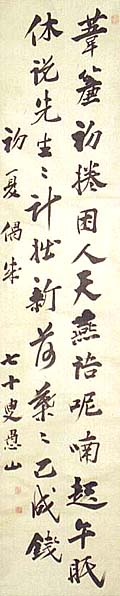 葦簾初捲困人天燕語呢喃起午眠
休説先生〻計拙新荷葉〻已成錢
初夏偶成 七十叟愚山